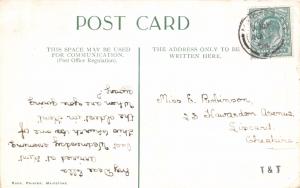 POST CARD
THIS SPACE MAY BE USED
FOR COMMUNICATION.
(Post Office Regulation).
THE ADDRESS ONLY TO BE
WRITTEN HERE.
My Dear Ella
Arrived at
last Wednesday evening
This
the
When are you going
away?
Miss E. Robinson,
23 Hawarden Avenue,
Liscard.
Cheshire.
T & T